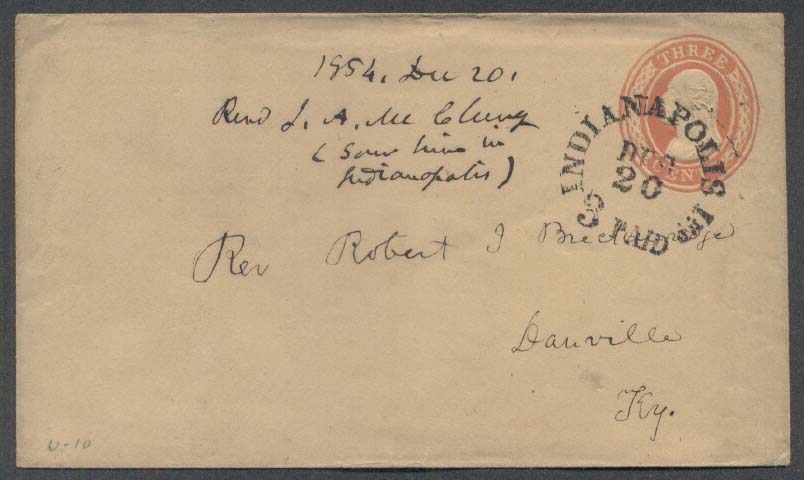 THREE
CENTS
INDIANAPOLIS
DEC
20
3 PAID
1854. Dec 20.
Revd J. A. McClung
(Saw him in
Indianapolis)
Rev Robert J Breckinridge
Danville
Ky.
U-10